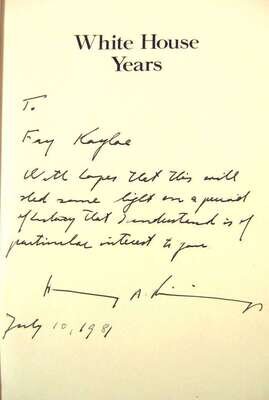 White House
Years
To
Fay
With hopes that this will
shed some light on a period
of history that I understand is of
particular interest to you
Henry A. Kissinger
July 10, 1981